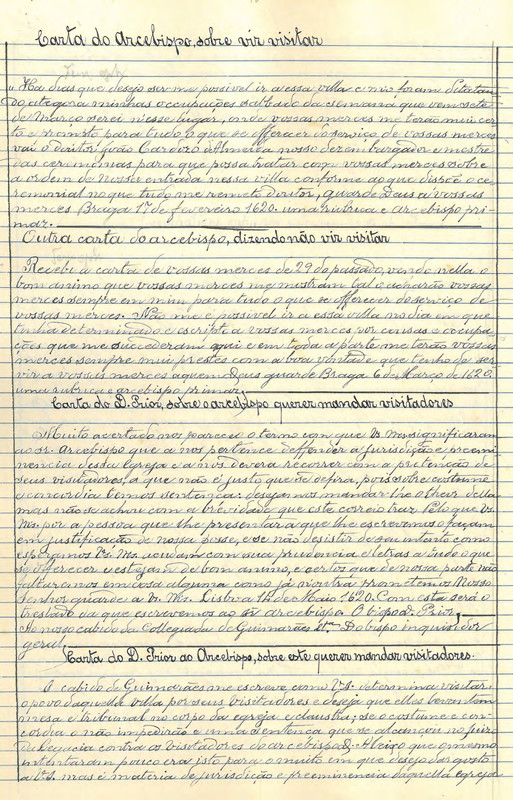 Carta do Arcebispo, sobre vir visitar
"Ha dias que desejo ser-me possivel ir a essa villa e não foram
do ategora minhas occupações sabbado da semana que vem sete
de Março serei nesse lugar, onde vossas merces me terão mui cer
to e pronto para tudo o que se offerecer do serviço de vossas merces
vai o doutor João Cardozo Almeira nosso dezembargador e mestre
das ceremonias para que possa tratar com vossas merces sobre
a ordem de nossa entrada nessa villa conforme ao que dispõe o ce
remonial no que tudo me remeto Doutor, guarde Deus a vossas
merces Braga 1º de fevereiro 1620. uma rubrica e arcebispo pri
maz.
Outra carta do arcebispo, dizendo não vir visitar
Recebi a carta de vossas merces de 29 do passado, vendo nella o
bom animo que vossas merces me mostram tal o acharão vossas
merces sempre em mim para tudo o que se offerecer do serviço de
vossas merces. Não me é possivel ir a essa villa no dia em que
tenha determinado e escrito a vossas merces por causas e ocupa
ções que me succederam aqui e em toda a parte me terão vossas
merces sempre mui prestes com a boa vontade que tenho de ser
vir a vossas merces a quem Deus guarde Braga 6 de Março de 1620.
uma rubrica e arcebispo primaz.
Carta do D. Prior, sobre o arcebispo querer mandar visitadores
Muito acertado nos pareceo o termo com que Vs. Ms. significaram
ao sr. Arcebispo que a nos pertence deffender a jurisdição e preemi
nencia dessa Egreja e a nós devera recorrer com a pretenção de
seus visitadores, a que não é justo que se defira, pois sobre costume
e concordia temos sentença: desejamos mandar lhe o treslado della
mas não se achou com a brevidade que este correio traz Pelo que Vs.
Ms. por a pessoa que lhe presentar a que lhe escrevemos o façam
em justificação de nossa posse, e se não desistir de seu intento como
esperamos Vs. Ms. acudam com sua prudencia e letras a tudo o que
se offerecer e estejam de bom animo, e certos que de nossa parte não
faltaremos em cousa alguma como já noutra prometemos Nosso
Senhor guarde a Vs. Ms. Lisboa 15 de Maio 1620. Com esta será o
treslado da que escrevemos ao sr arcebispo. O bispo D. Prior,
Ao nosso cabido da Collegiada de Guimarães Do bispo inquisidor
geral.
Carta do D. Prior ao Arcebispo, sobre este querer mandar visitadores.
O cabido de Guimarães me escreve como V.S. determina visitar
o povo daquella villa por seus visitadores e deseja que elles levantem
mesa e tribunal no corpo da egreja e claustra; se o costume e con
cordia o não impedirão e uma sentença que se alcançou no juizo
da Legacia contra os visitadores do arcebispo D. Aleixo que o mesmo
intentaram pouco era isto para o muito em que desejo dar gosto
a V.S. mas é materia de jurisdição e preeminencia daquella egreja